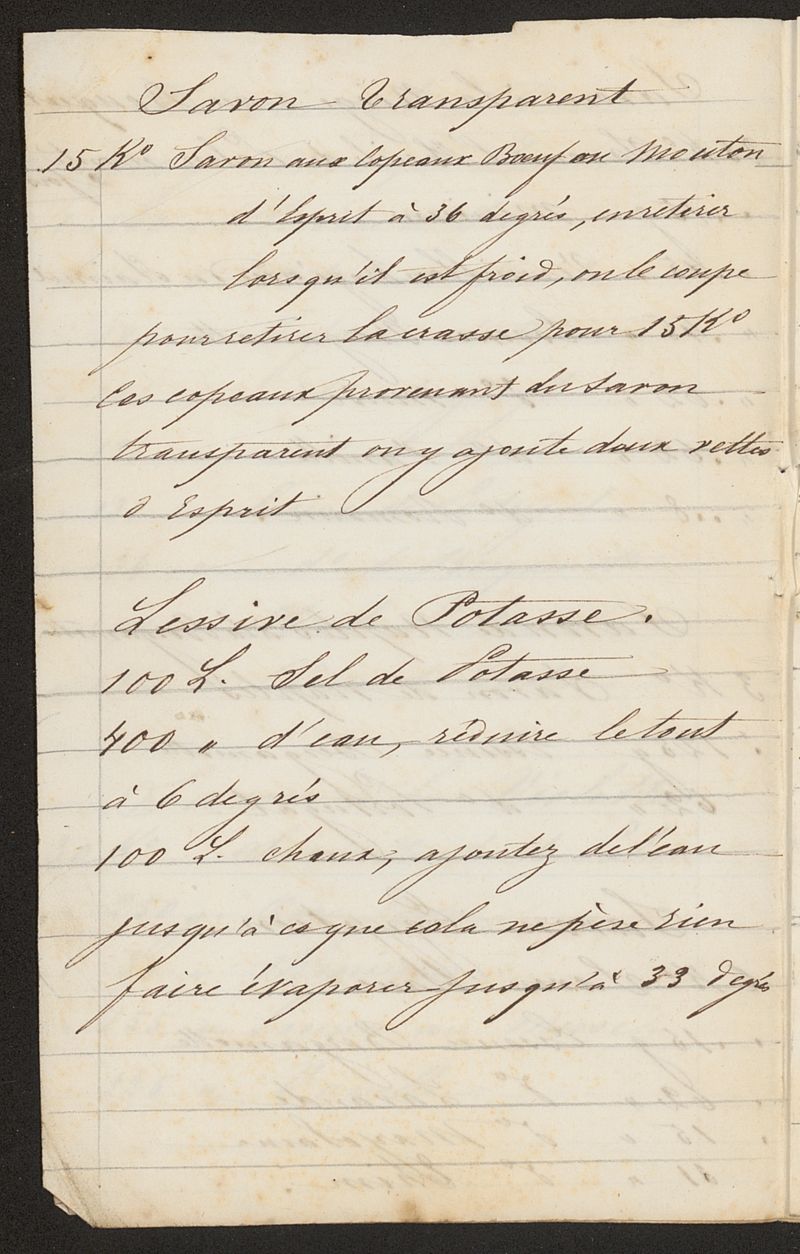 Savon transparent
15 K° Savon aux Copeaux Bœuf ou Mouton
d'Esprit à 36 degrés, en retirer
lorsqu'il est froid, on le coupe
pour retirer la crasse pour 15 K°
les copeaux provenant du Savon
transparent on y ajoute deux veltes
d Esprit
Lessive de Potasse.
100 L. Sel de Potasse
400 " d'eau, réduire le tout
à 6 degrés
100 L. chaux, ajoutez de l'eau
jusqu'à ce que cela ne pèse rien
faire évaporer jusqu'à 33 degrés